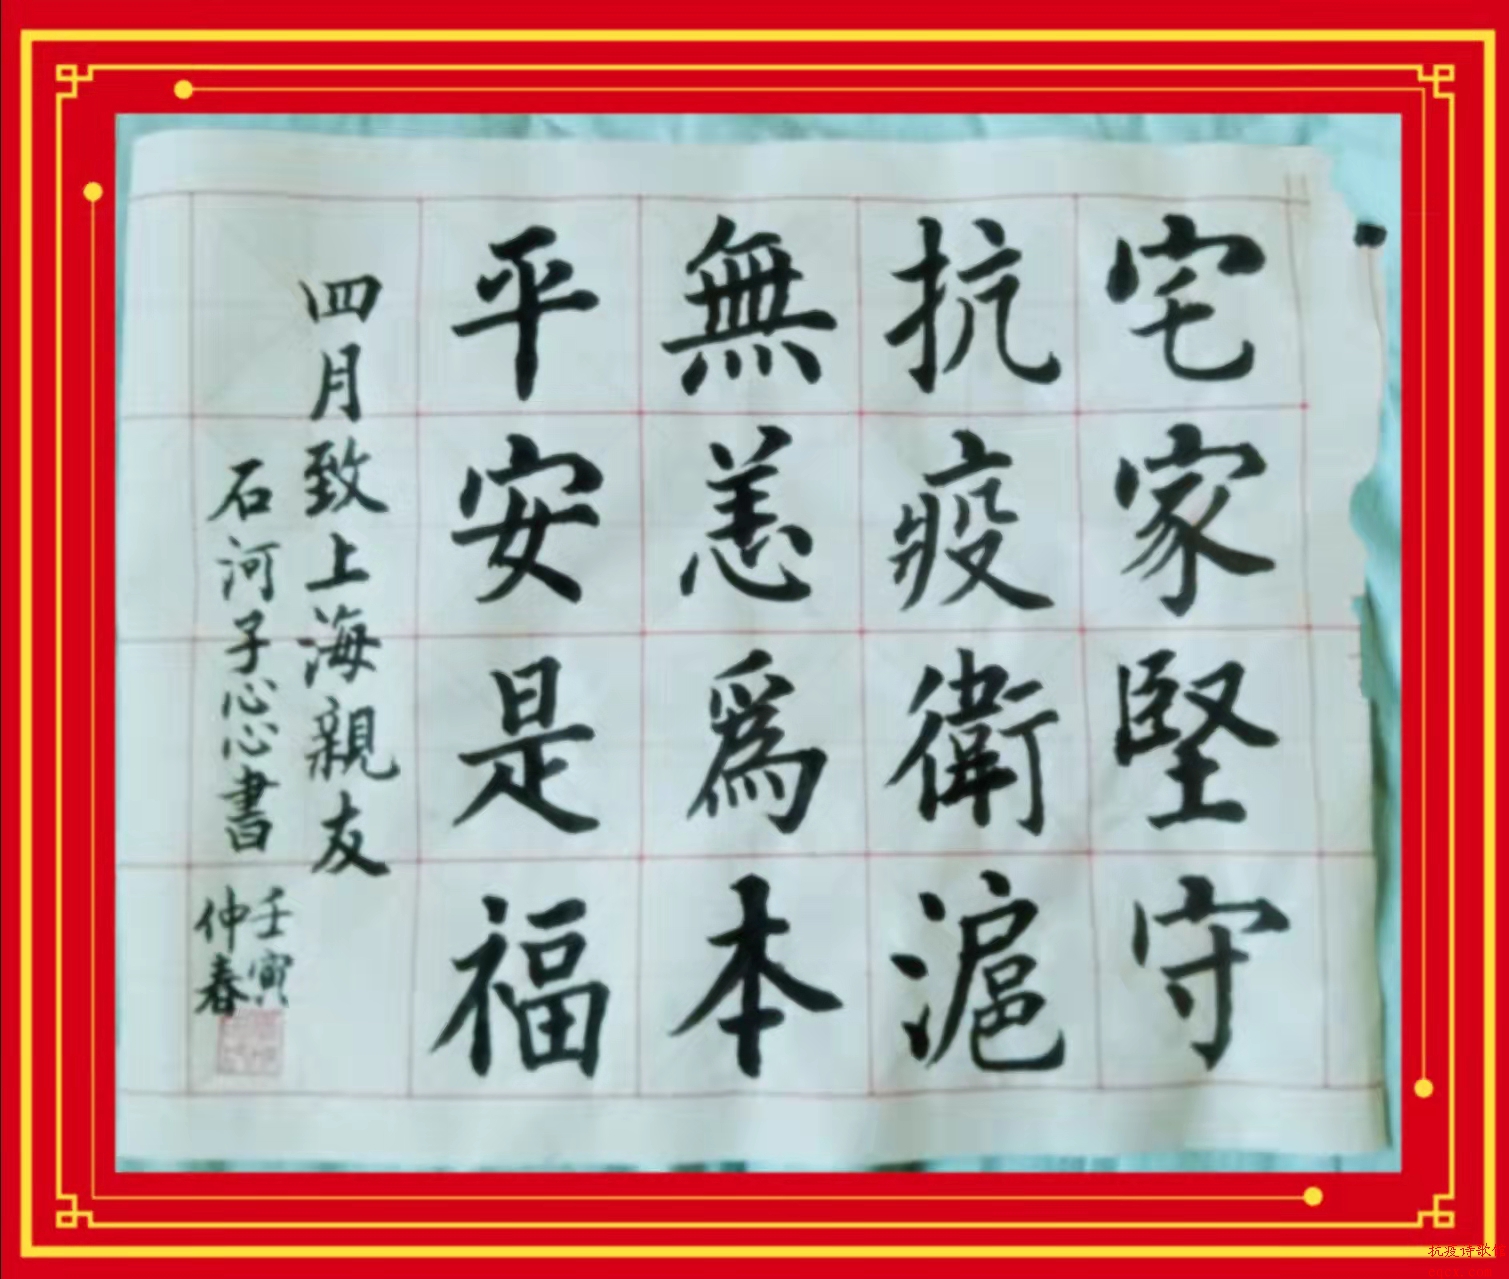 宅家堅守
抗疫衛滬
無恙為本
平安是福
四月致上海親友
石河子心心書
壬寅
仲春
抗疫诗歌